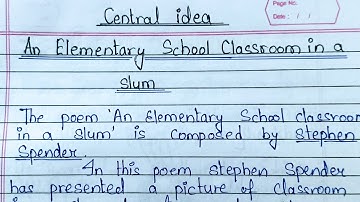 Page No.
Date: / /
Central idea
An Elementary School Classroom in a
slum
The poem 'An Elementary School classroom
in a slum' is composed by stephen
Spender.
In this poem stephen Spender
has presented a picture of classroom